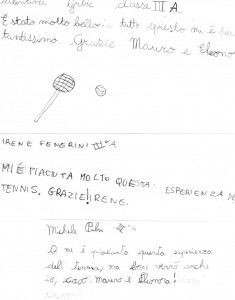 classe III A
È stato molto bello: tutto questo mi è
tantissimo. Grazie Mauro e Eleono
IRENE FENERINI III°A
MI É PIACIUTA MOLTO QUESTA: ESPERIENZA DE
TENNIS, GRAZIE! IRENE.
Michele
O mi è piaciuta questa esperienza
del tennis, ma forse verrò anch
io, ciao Mauro e Eleonora!